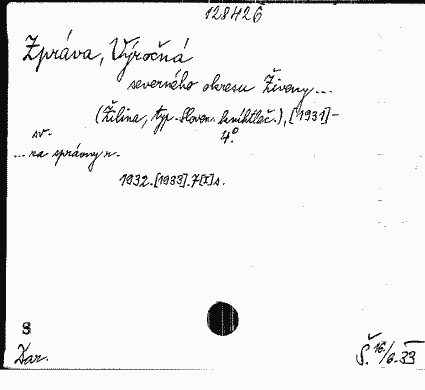 128426
Zpráva, Výročná
severného okresu Živeny...
(Žilina, typ. Sloven. kníhtlač.), [1931]-
sv. 4.°
... za správny r.
1932. [1933]. 7 [I] s.
S
Dar. Š. 16/6.33